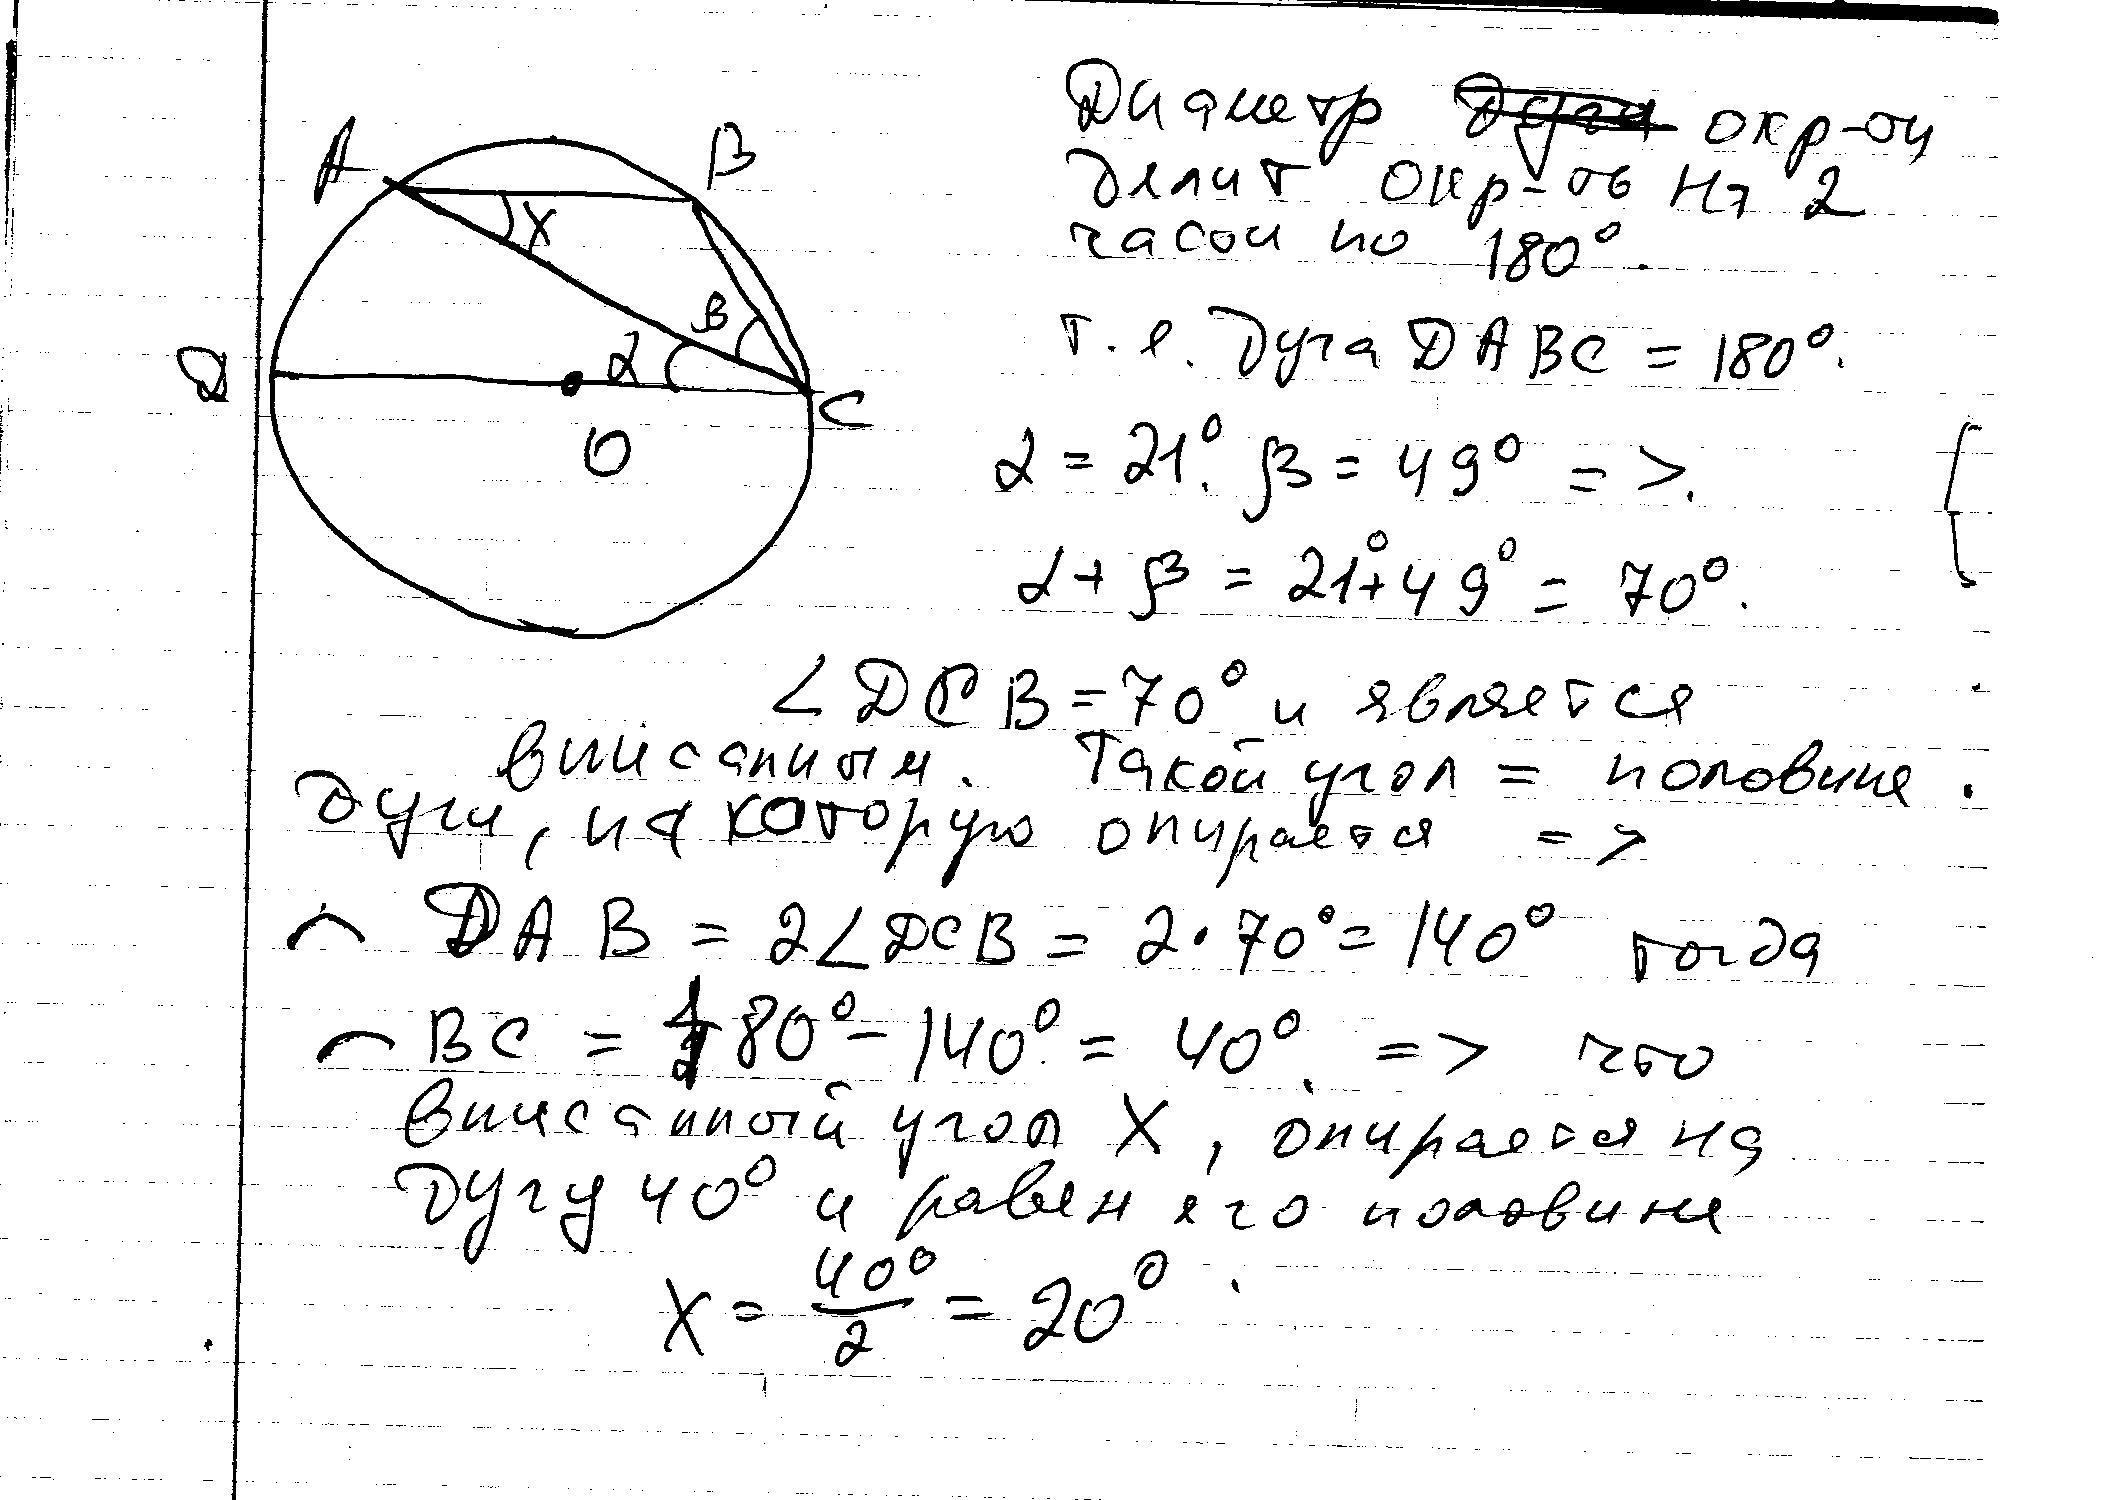 Диаметр окр-ти
делит окр-ть на 2
часои по 180°.
т.е. дуга DABC = 180°.
α = 21°. β = 49° =>.
α + β = 21°+49° = 70°.
∠DCB = 70° и является
вписанным. Такой угол = половине.
дуги, на которую опирается =>
⌒ DAB = 2∠DCB = 2·70° = 140° тогда
⌒ BC = 180° - 140° = 40°. => что
вписанный угол X, опирается на
дугу 40° и равен его половине
X = 40°/2 = 20°.
A
B
X
β
α
D
O
C